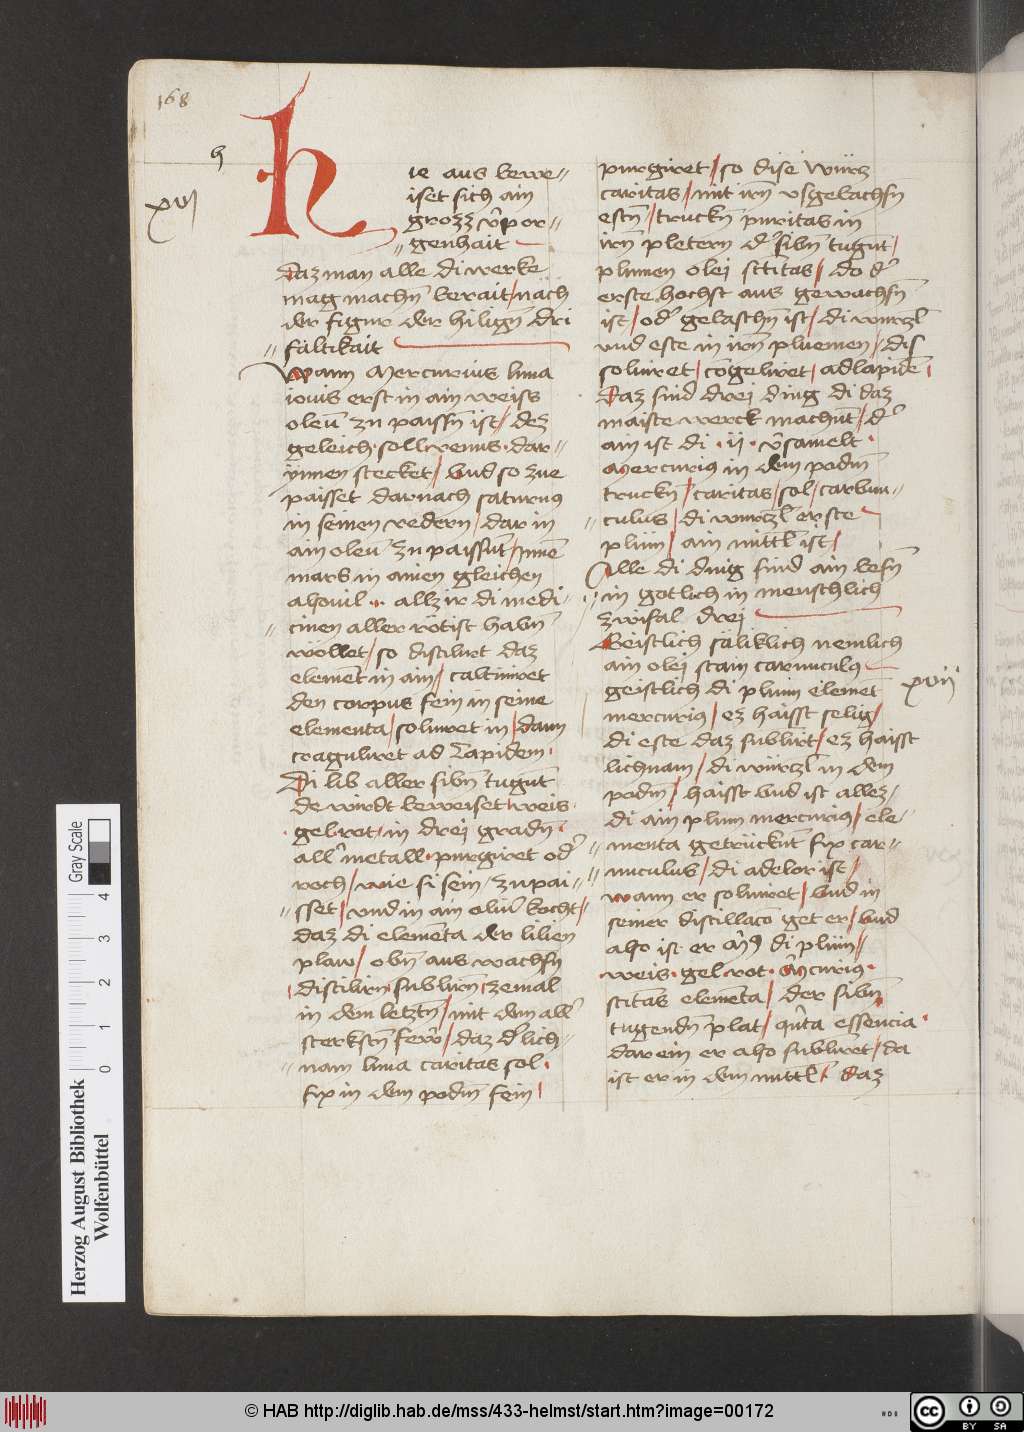 168
h
xvj
Hie aus bewe-//
iset sich ain
grozz v̂por-//
//genhait
Daz man alle di werke
mag mach̄n berait / näch
der figur der hiliḡn dri
//fältikait
Wann Mercurius luna
iouis erst in ain weiss
oleū zu paiss̄n ist / dez
geleich · soll venus · dar-//
ynnen stecket / vnd so zue
paisset darnach saturnus
in seinen redern / dar in
ain oleū zu paissn̄t /
mars in ainen gleichen
alsouil · allz ir di medi-//
//cinen aller rötist hab̄n
wöllet / so distilirt daz
elemēt in ain / calciniret
den corpus fein in seine
elementa / soluiret in / dann
coaguliret ad Lapidem ·
Di lib aller sib̄n tuge̅t
de wirdt beweiset weis ·
· gel · rot / in drej grad̄n ·
all̂ metall · purgiret od̂
roch / wie si sein / zu pai-//
//sset / vnd in ain olium kocht /
daz di elemēta der lilien
plaw / ob̄n aus wachs̄n
/ distilir̄n / sublir̄n / zemal
in dem letzt̄n / mit dem all̂
sterkst̄n few̄r / daz d̂ lich-//
//nam luna caritas sol ·
fix in dem podm̄ fein /
purgiret / so dise würz
caritas / mit irn̄ vsgelachs̄n
est̄n / truck̄n puritas in
irn̄ pletern d̂ sib̄n tugūt /
plumen olej sc̄titas / do d̂
erste hochst aus gewachs̄n
ist / od̂ gelasch̄n ist / di wurzl̄
vnd este in irn̄ pluemen / dis
soluiret / cōgeliret / ad lapidē /
Daz sind drej ding di daz
maiste werck machn̄t / d̂
ain ist di · ij · v̂samelt ·
Mercurius in dem podm̄
truck̄n / caritas / sol / carbun-//
//culus / di wurzl̄ erste
plüm / ain mittl̄ ist /
Alle di ding sind ain bes̄n
in gotlich in menschlich
zwifal drej
Geistlich säliklich nemlich
ain olej stain carunculus
xvij
geistlich di plum elemēt
mercurius / ez haisst selig /
di este daz sublirt / ez haisst
lichnam / di würzl̄ in dem
podm̄ / haisst vnd ist allez /
di ain plum mercurius / ele-//
//menta getrückn̄t fix car-//
//unculus / di adelor ist /
wann er soluiret / vnd in
seiner distillaco get er / vnd
also ist er di plüm //
weis · gel · rot · M̂curius ·
sc̄titās elemēta / der sib̄n
tugend̄n plat / qn̂ta essencia ·
darein er also sublirēt / da
ist er in dem mittl̄ · daz
Herzog August Bibliothek
Wolfenbüttel
0 1 2 3 4
Gray Scale
© HAB http://diglib.hab.de/mss/433-helmst/start.htm?image=00172
cc BY SA